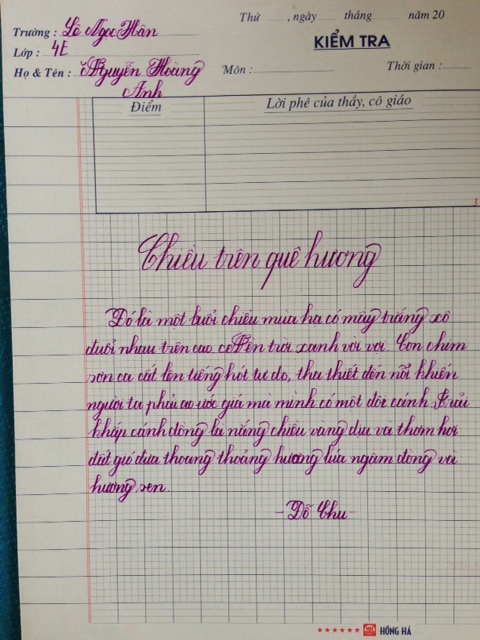 Thứ ....., ngày ..... tháng ..... năm 20
Trường : Lê Ngọc Hân
Lớp : 4E
KIỂM TRA
Họ & Tên : Nguyễn Hoàng
Anh
Môn :
Thời gian :
Điểm
Lời phê của thầy, cô giáo
3
Chiều trên quê hương
Đó là một buổi chiều mùa hạ có mây trắng xô
đuổi nhau trên cao. Nền trời xanh vời vợi. Con chim
sơn ca cất lên tiếng hót tự do, tha thiết đến nỗi khiến
người ta phải ao ước giá mà mình có một đôi cánh. Trải
khắp cánh đồng là nắng chiều vàng dịu và thơm hơi
đất gió đưa thoang thoảng hương lúa ngậm đòng và
hương sen.
- Đỗ Chu -
HỒNG HÀ